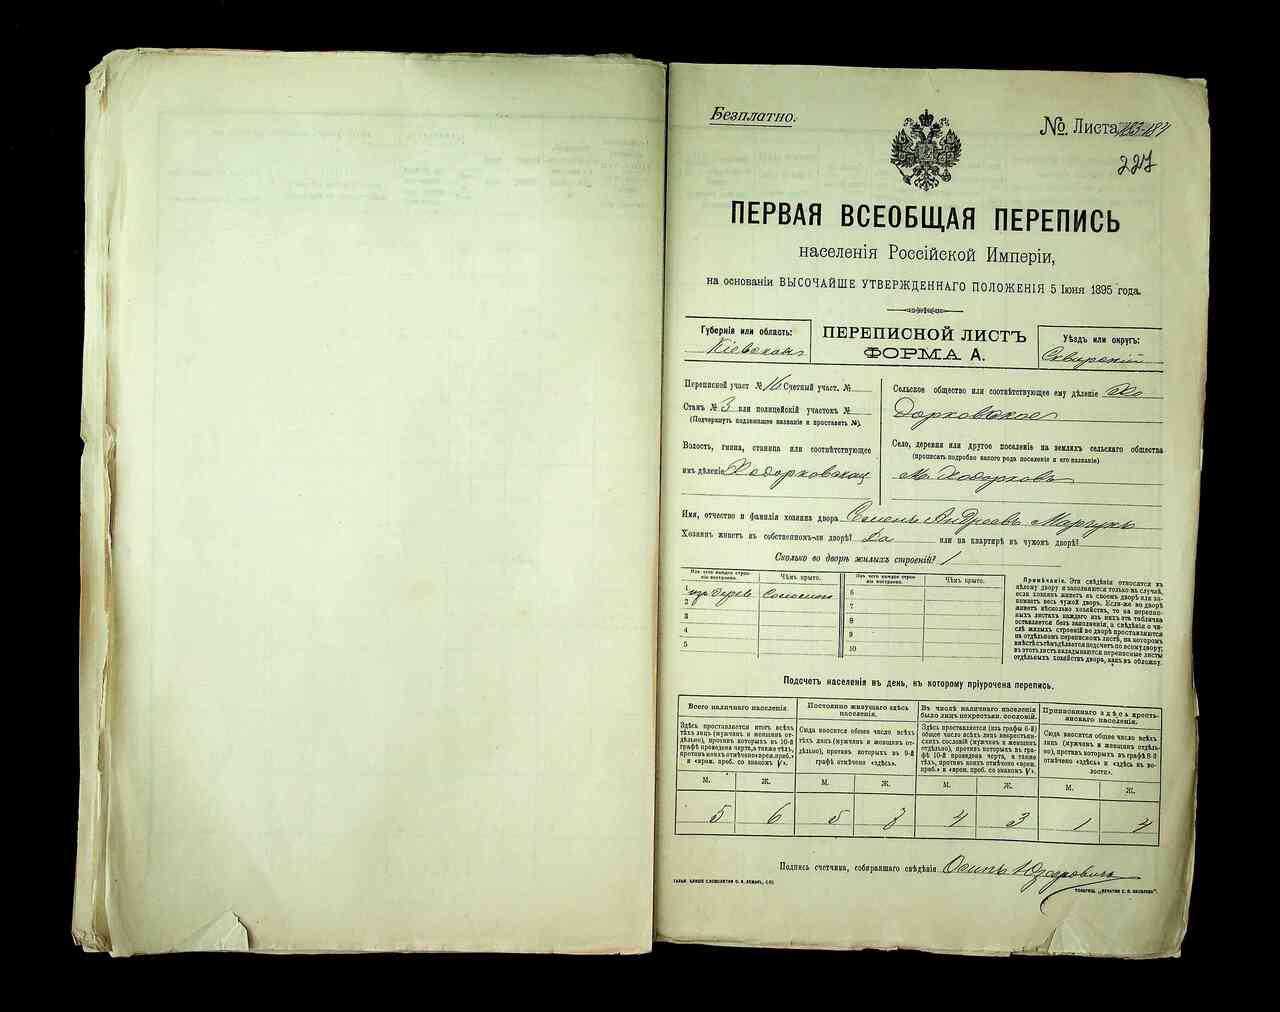 Безплатно.
№. Листа
227
ПЕРВАЯ ВСЕОБЩАЯ ПЕРЕПИСЬ
населенія Россійской Имперіи,
на основаніи ВЫСОЧАЙШЕ УТВЕРЖДЕННАГО ПОЛОЖЕНІЯ 5 Іюня 1895 года.
Губернія или область:
Кіевская
ПЕРЕПИСНОЙ ЛИСТЪ
ФОРМА А.
Уѣздъ или округъ:
Сквирскій
Переписной участ № 16 Счетный участ. №
Станъ № 3 или полицейскій участокъ №
(Подчеркнуть подлежащее названіе и проставить №).
Волость, гмина, станица или соотвѣтствующее
имъ дѣленіе Ходорковская
Сельское общество или соотвѣтствующее ему дѣленіе Хо
дорковское
Село, деревня или другое поселеніе на земляхъ сельскаго общества
(прописать подробно какого рода поселеніе и его названіе)
м. Ходорковъ
Имя, отчество и фамилія хозяина двора Семенъ Андреевъ Марчукъ
Хозяинъ живетъ въ собственномъ-ли дворѣ? Да или на квартирѣ въ чужомъ дворѣ?
Сколько во дворѣ жилыхъ строеній? 1
Изъ чего каждое строеніе построено. Чѣмъ крыто. Изъ чего каждое строеніе построено. Чѣмъ крыто.
1 изъ дерева Соломою 6
2 7
3 8
4 9
5 10
Примѣчаніе. Эти свѣдѣнія относятся къ
цѣлому двору и заполняются только въ случаѣ,
если хозяинъ живетъ въ своемъ дворѣ или занимаетъ
весь чужой дворъ. Если-же во дворѣ
живетъ нѣсколько хозяйствъ, то на переписныхъ
листахъ каждаго изъ нихъ эта табличка
оставляется безъ заполненія, а свѣдѣнія о числѣ
жилыхъ строеній во дворѣ проставляются
на отдѣльномъ переписномъ листѣ, на которомъ
вмѣстѣ съ тѣмъ дѣлается подсчетъ по всему двору;
въ этотъ листъ вкладываются переписные листы
отдѣльныхъ хозяйствъ двора, какъ въ обложку.
Подсчетъ населенія въ день, къ которому пріурочена перепись.
Всего наличнаго населенія.
Здѣсь проставляется итогъ всѣхъ
тѣхъ лицъ (мужчинъ и женщинъ отдѣльно),
противъ которыхъ въ 10-й
графѣ проведена черта, а также тѣхъ,
противъ коихъ отмѣчено «врем. проб.»
и «врем. проб. со знакомъ V».
Постоянно живущаго здѣсь
населенія.
Сюда вносится общее число всѣхъ
тѣхъ лицъ (мужчинъ и женщинъ отдѣльно),
противъ которыхъ въ 9-й
графѣ отмѣчено «здѣсь».
Въ числѣ наличнаго населенія
было лицъ некрестьян. сословій.
Здѣсь проставляется (изъ графы 6-й)
общее число всѣхъ лицъ некрестьянскихъ
сословій (мужчинъ и женщинъ
отдѣльно), противъ которыхъ въ графѣ
10-й проведена черта, а также
тѣхъ, противъ коихъ отмѣчено «врем.
проб.» и «врем. проб. со знакомъ V».
Приписаннаго здѣсь крестьянскаго
населенія.
Сюда вносится общее число всѣхъ
лицъ (мужчинъ и женщинъ отдѣльно),
противъ которыхъ въ графѣ 8-й
отмѣчено «здѣсь» и «здѣсь въ волости».
М. Ж. М. Ж. М. Ж. М. Ж.
5 6 5 7 4 3 1 4
Подпись счетчика, собиравшаго свѣдѣнія Осипъ